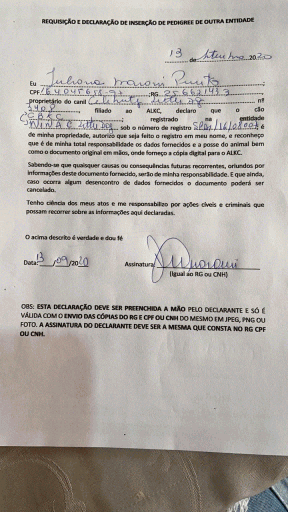 REQUISIÇÃO E DECLARAÇÃO DE INSERÇÃO DE PEDIGREE DE OUTRA ENTIDADE
13 de Setembro 2020
Eu Juliana
CPF RG
proprietário do canil nº
filiado ao ALKC, declaro que o cão
registrado na entidade
sob o número de registro é
de minha propriedade, autorizo que seja feito o registro em meu nome, e reconheço
que é de minha total responsabilidade os dados fornecidos e a posse do animal bem
como o documento original em mãos, onde forneço a cópia digital para o ALKC.
Sabendo-se que quaisquer causas ou consequências futuras recorrentes, oriundos por
informações deste documento fornecido, serão de minha responsabilidade. E que ainda,
caso ocorra algum desencontro de dados fornecidos o documento poderá ser
cancelado.
Tenho ciência dos meus atos e me responsabilizo por ações cíveis e criminais que
possam recorrer sobre as informações aqui declaradas.
O acima descrito é verdade e dou fé
Data: 13 /09/2020 Assinatura
(Igual ao RG ou CNH)
OBS: ESTA DECLARAÇÃO DEVE SER PREENCHIDA A MÃO PELO DECLARANTE E SÓ É
VÁLIDA COM O ENVIO DAS CÓPIAS DO RG E CPF OU CNH DO MESMO EM JPEG, PNG OU
FOTO. A ASSINATURA DO DECLARANTE DEVE SER A MESMA QUE CONSTA NO RG CPF
OU CNH.